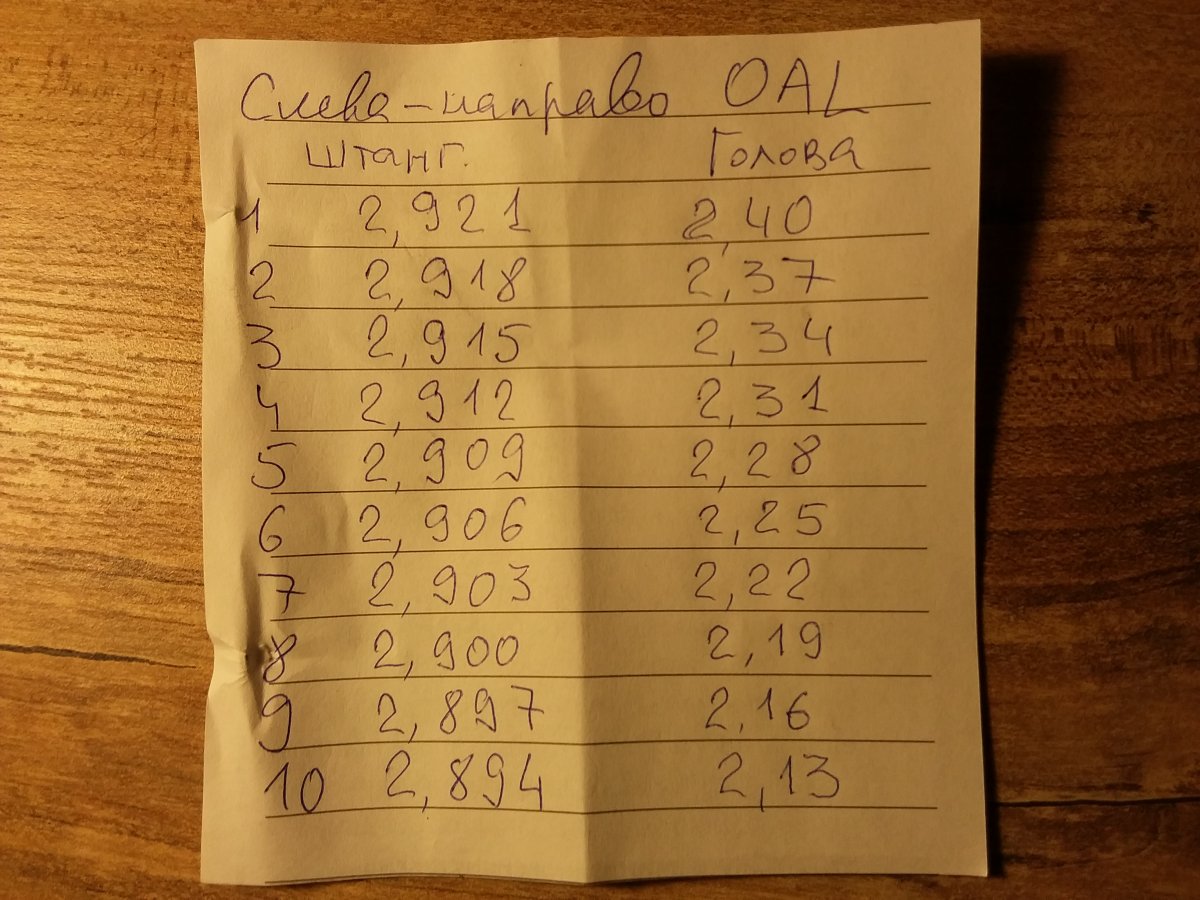 Слева-направо OAL
Штанг. Голова
1 2,921 2,40
2 2,918 2,37
3 2,915 2,34
4 2,912 2,31
5 2,909 2,28
6 2,906 2,25
7 2,903 2,22
8 2,900 2,19
9 2,897 2,16
10 2,894 2,13